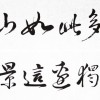 山如此多
景這邊獨